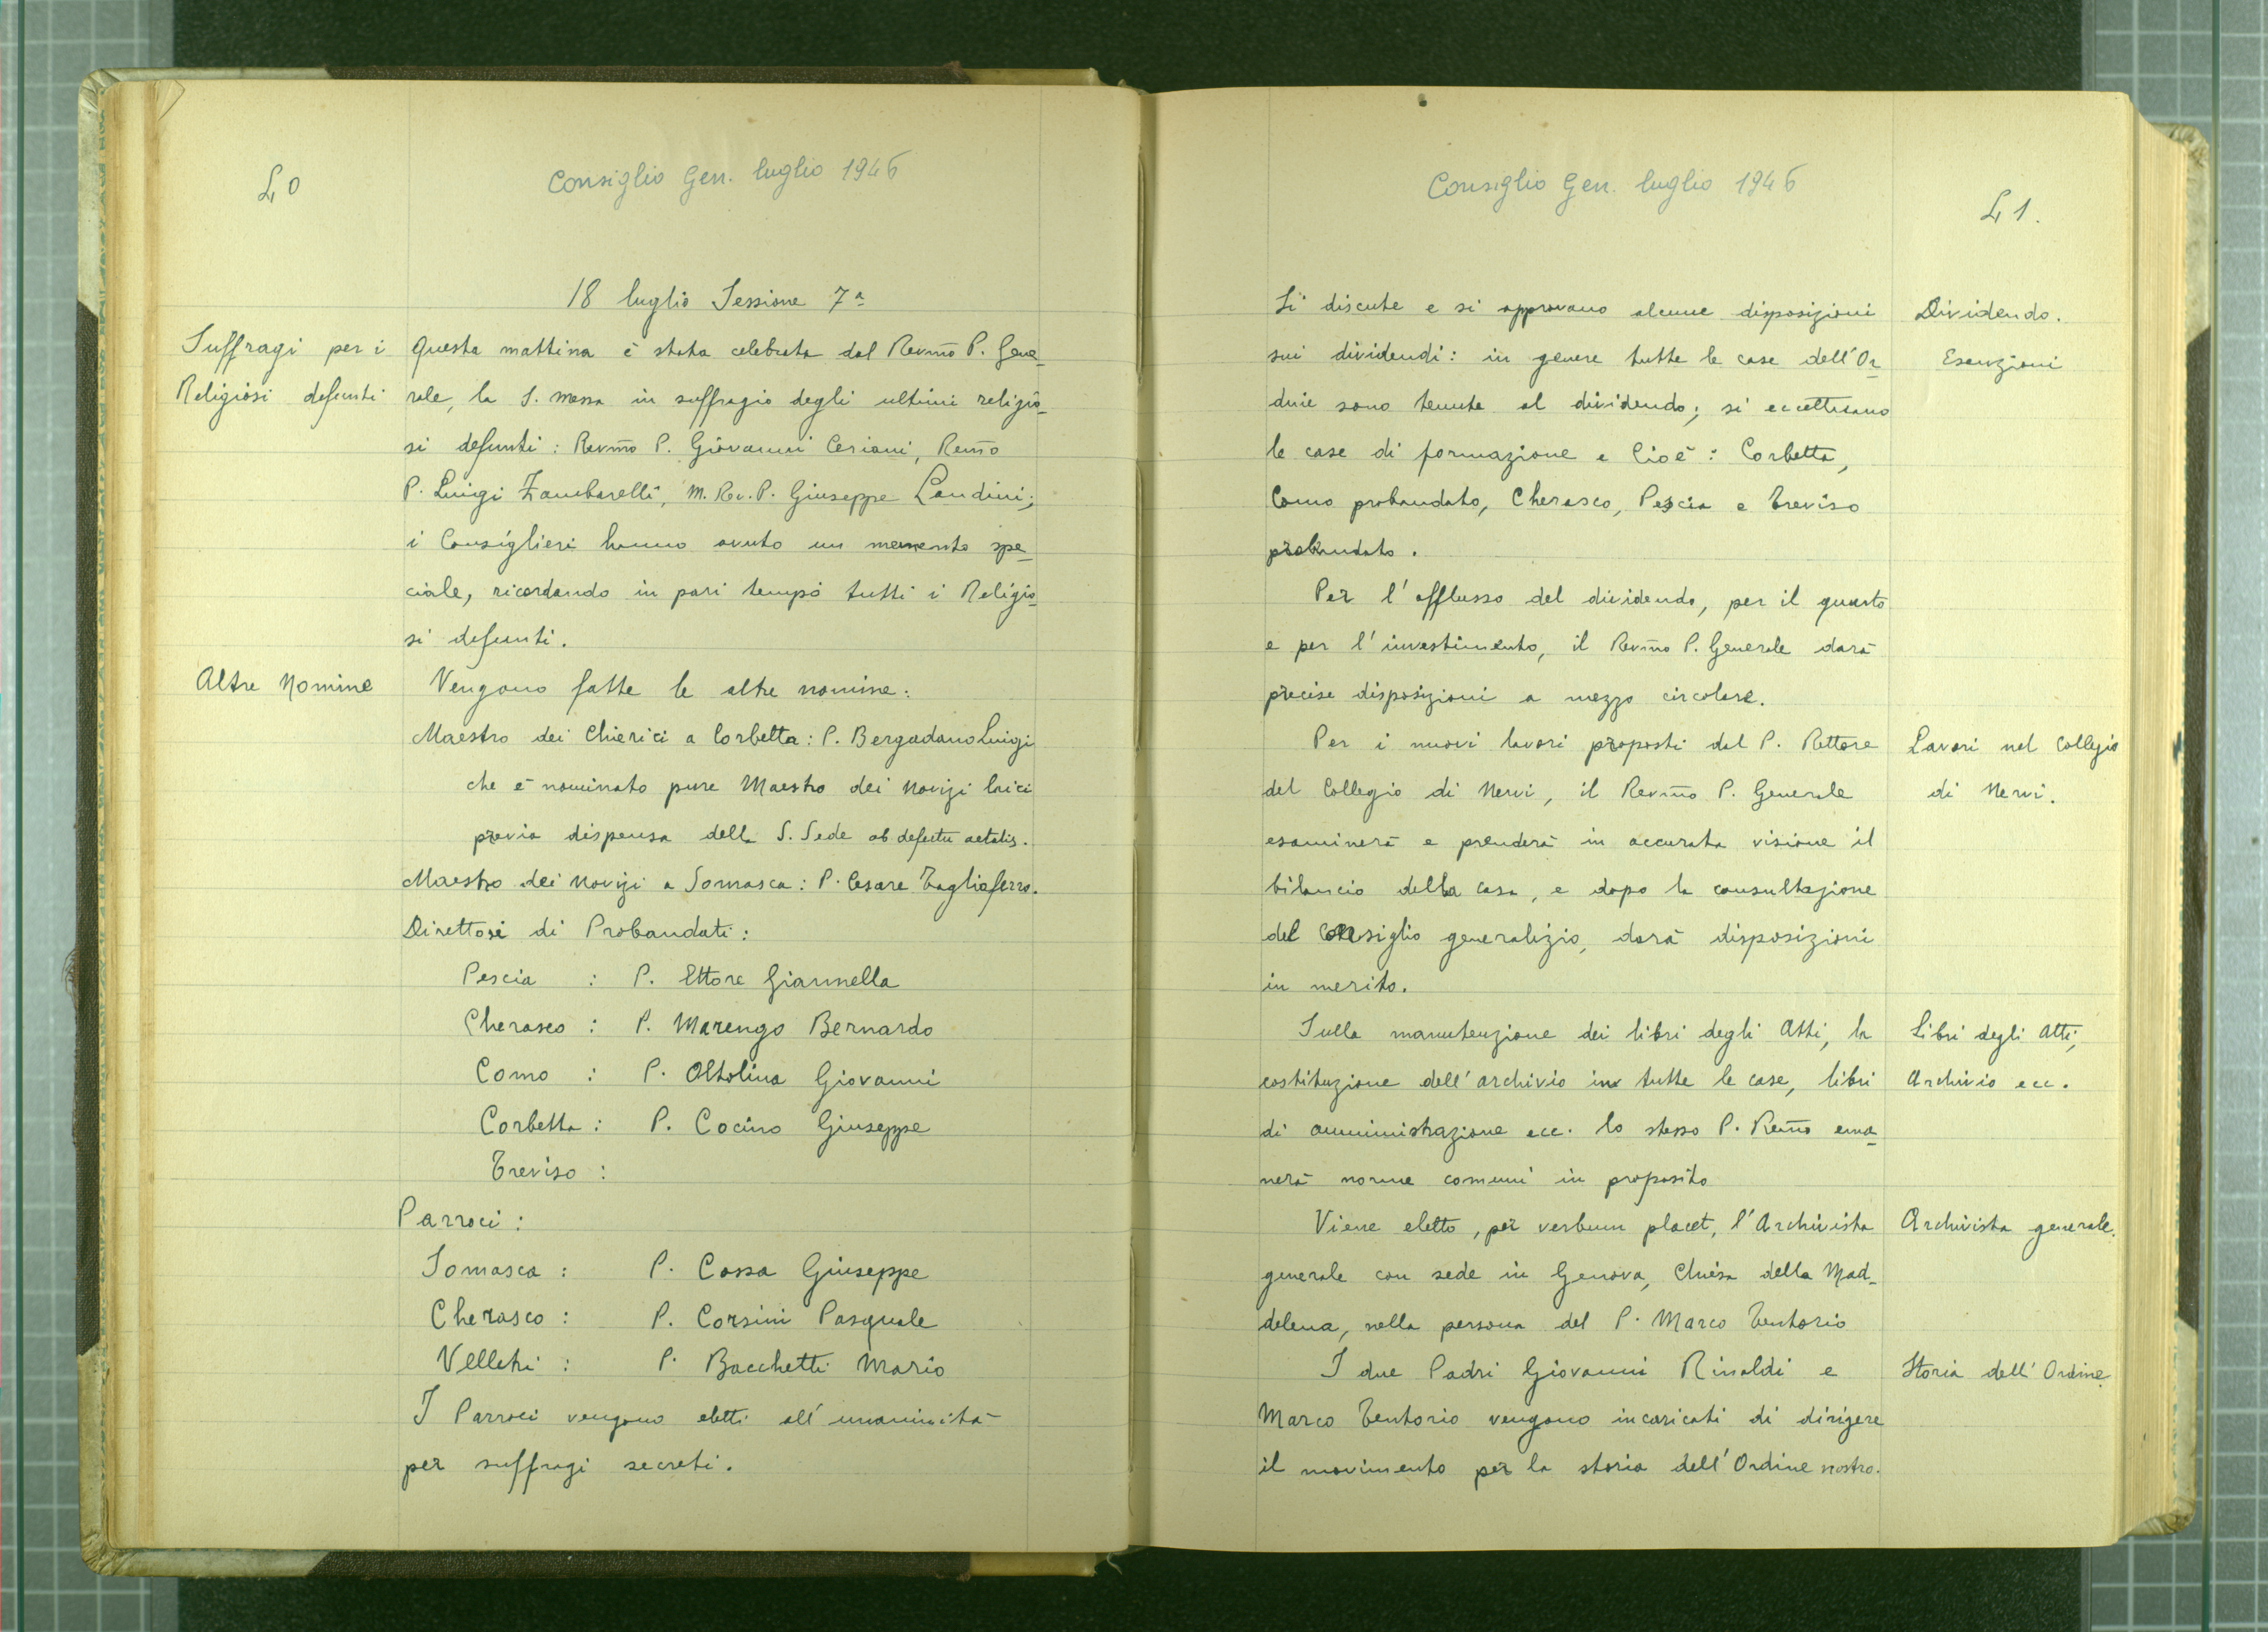 40
Consiglio Gen. luglio 1946
18 luglio Sessione 7ª
Suffragi per i
Religiosi defunti
Questa mattina è stata celebrata dal Revmo P. Gene-
rale, la S. messa in suffragio degli ultimi religio-
si defunti: Revmo P. Giovanni Ceriani, Remo
P. Luigi Zambarelli, M. Rev. P. Giuseppe Landini;
i Consiglieri hanno avuto un memento spe-
ciale, ricordando in pari tempo tutti i Religio-
si defunti.
Altre Nomine
Vengono fatte le altre nomine:
Maestro dei Chierici a Corbetta: P. Bergadano Luigi
che è nominato pure Maestro dei Novizi laici
previa dispensa della S. Sede ob defectu aetatis.
Maestro dei Novizi a Somasca: P. Cesare Tagliaferro.
Direttori di Probandati:
Pescia : P. Ettore Giannella
Cherasco : P. Marengo Bernardo
Como : P. Oltolina Giovanni
Corbetta : P. Cocino Giuseppe
Treviso :
Parroci :
Somasca : P. Cossa Giuseppe
Cherasco : P. Corsini Pasquale
Velletri : P. Bacchetti Mario
I Parroci vengono eletti all'unanimità
per suffragi secreti.
Consiglio Gen. luglio 1946
41.
Si discute e si approvano alcune disposizioni
sui dividendi: in genere tutte le case dell'Or-
dine sono tenute al dividendo; si eccettuano
le case di formazione e cioè: Corbetta,
Como probandato, Cherasco, Pescia e Treviso
probandato.
Dividendo.
Esenzioni
Per l'afflusso del dividendo, per il quanto
e per l'investimento, il Revmo P. Generale darà
precise disposizioni a mezzo circolare.
Per i nuovi lavori proposti dal P. Rettore
del Collegio di Nervi, il Revmo P. Generale
esaminerà e prenderà in accurata visione il
bilancio della casa, e dopo la consultazione
del Consiglio generalizio, darà disposizioni
in merito.
Lavori nel Collegio
di Nervi.
Sulla manutenzione dei libri degli Atti, la
costituzione dell'archivio in tutte le case, libri
di amministrazione ecc. lo stesso P. Remo ema-
nerà norme comuni in proposito
Libri degli Atti,
Archivio ecc.
Viene eletto, per verbum placet, l'Archivista
generale con sede in Genova, Chiesa della Mad-
dalena, nella persona del P. Marco Tentorio
Archivista generale.
I due Padri Giovanni Rinaldi e
Marco Tentorio vengono incaricati di dirigere
il movimento per la storia dell'Ordine nostro.
Storia dell'Ordine.